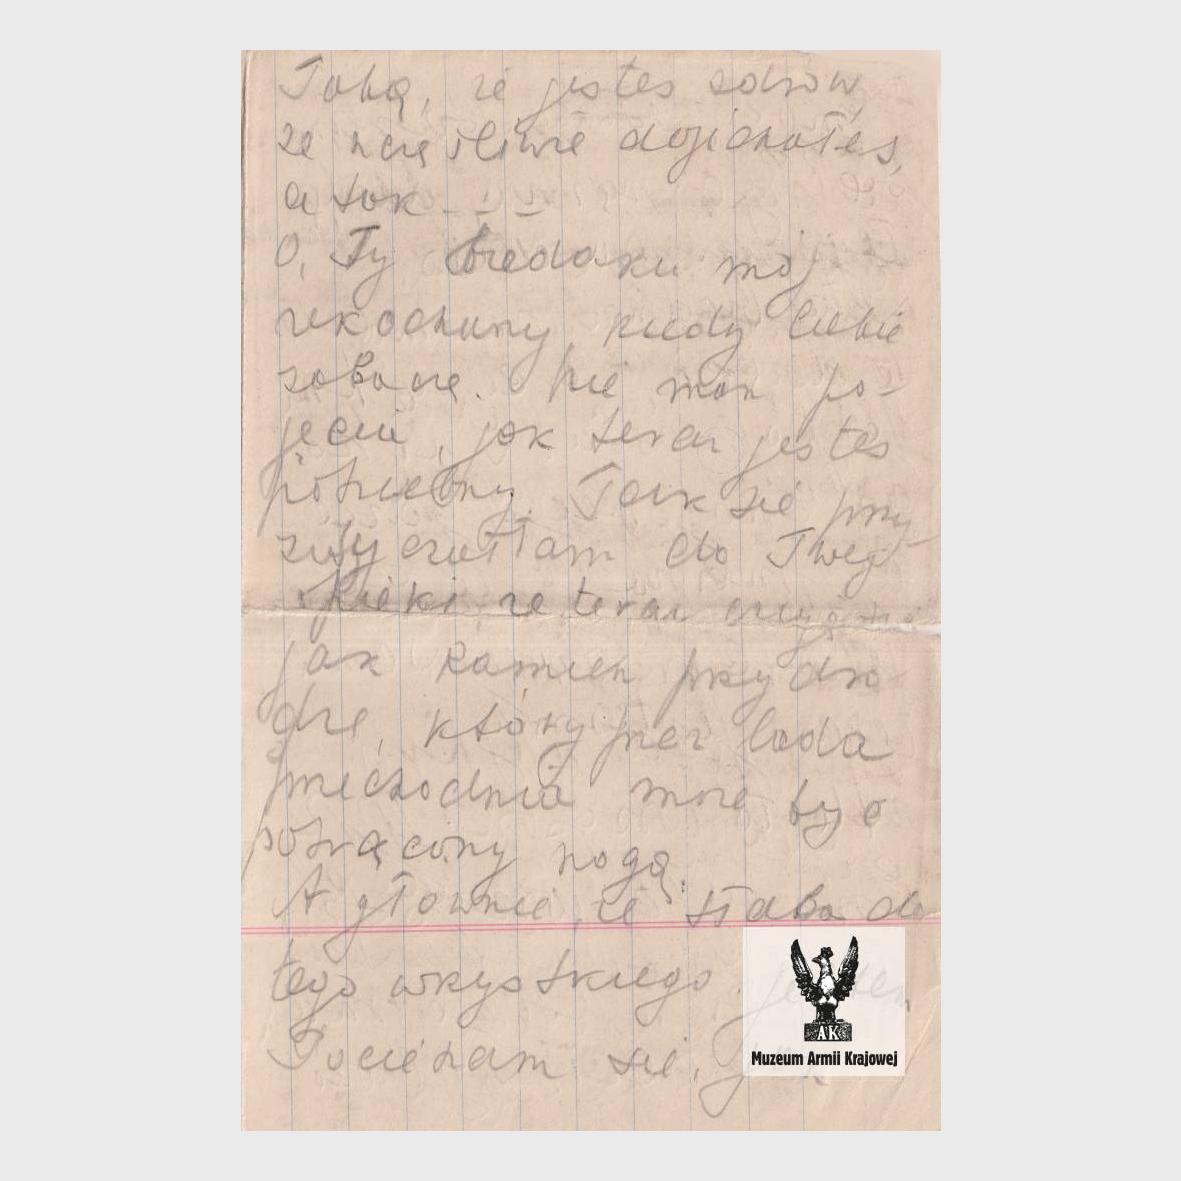 Tobą, że jesteś zdrów
że szczęśliwie dojechałeś,
a tak - - -
O, Ty biedaku mój
zekochany, kiedy Ciebie
zobaczę. Nie masz po-
jęcia, jak teraz jesteś
potrzebny. Tak się przy
zwyczaiłam do Twej
opieki, że teraz czuję się
jak kamień przy dro
dze, który przez lada
przechodnia może być
potrącony nogą.
A głównie, że słaba do
tego wszystkiego jestem
Pocieszam się, jak
AK
Muzeum Armii Krajowej